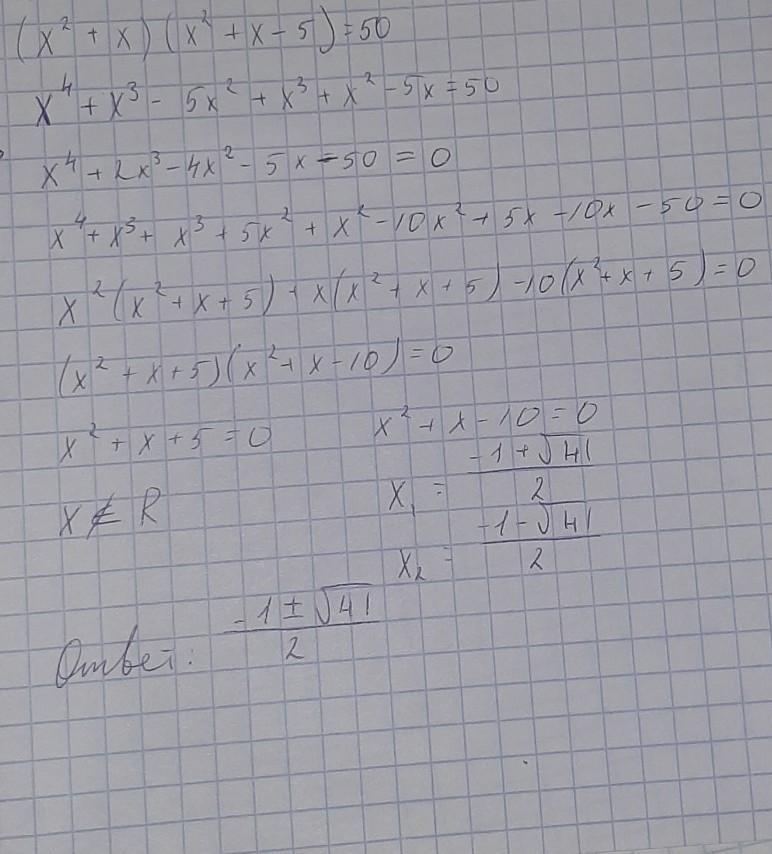 (x² + x)(x² + x - 5) = 50
x⁴ + x³ - 5x² + x³ + x² - 5x = 50
x⁴ + 2x³ - 4x² - 5x - 50 = 0
x⁴ + x³ + x³ + 5x² + x² - 10x² + 5x - 10x - 50 = 0
x²(x² + x + 5) + x(x² + x + 5) - 10(x² + x + 5) = 0
(x² + x + 5)(x² + x - 10) = 0
x² + x + 5 = 0 x² + x - 10 = 0
x ∉ R x₁ = (-1 + √41)/2
x₂ = (-1 - √41)/2
Ответ: (-1 ± √41)/2